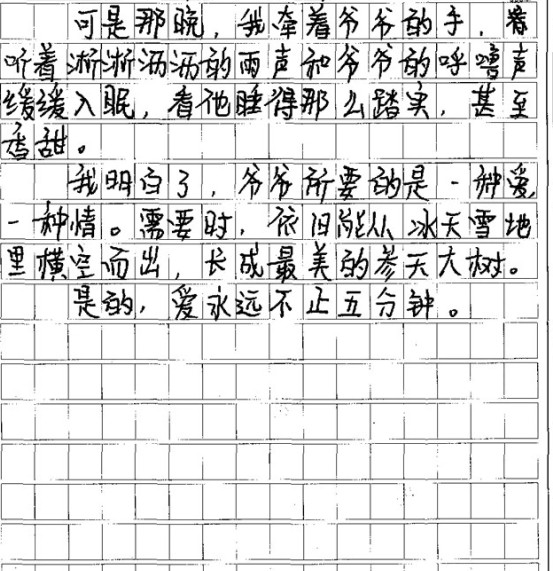 可是那晚，我牵着爷爷的手，看
听着淅淅沥沥的雨声和爷爷的呼噜声
缓缓入眠，看他睡得那么踏实，甚至
香甜。
我明白了，爷爷所要的是一种爱
一种情。需要时，依旧能从冰天雪地
里横空而出，长成最美的参天大树。
是的，爱永远不止五分钟。